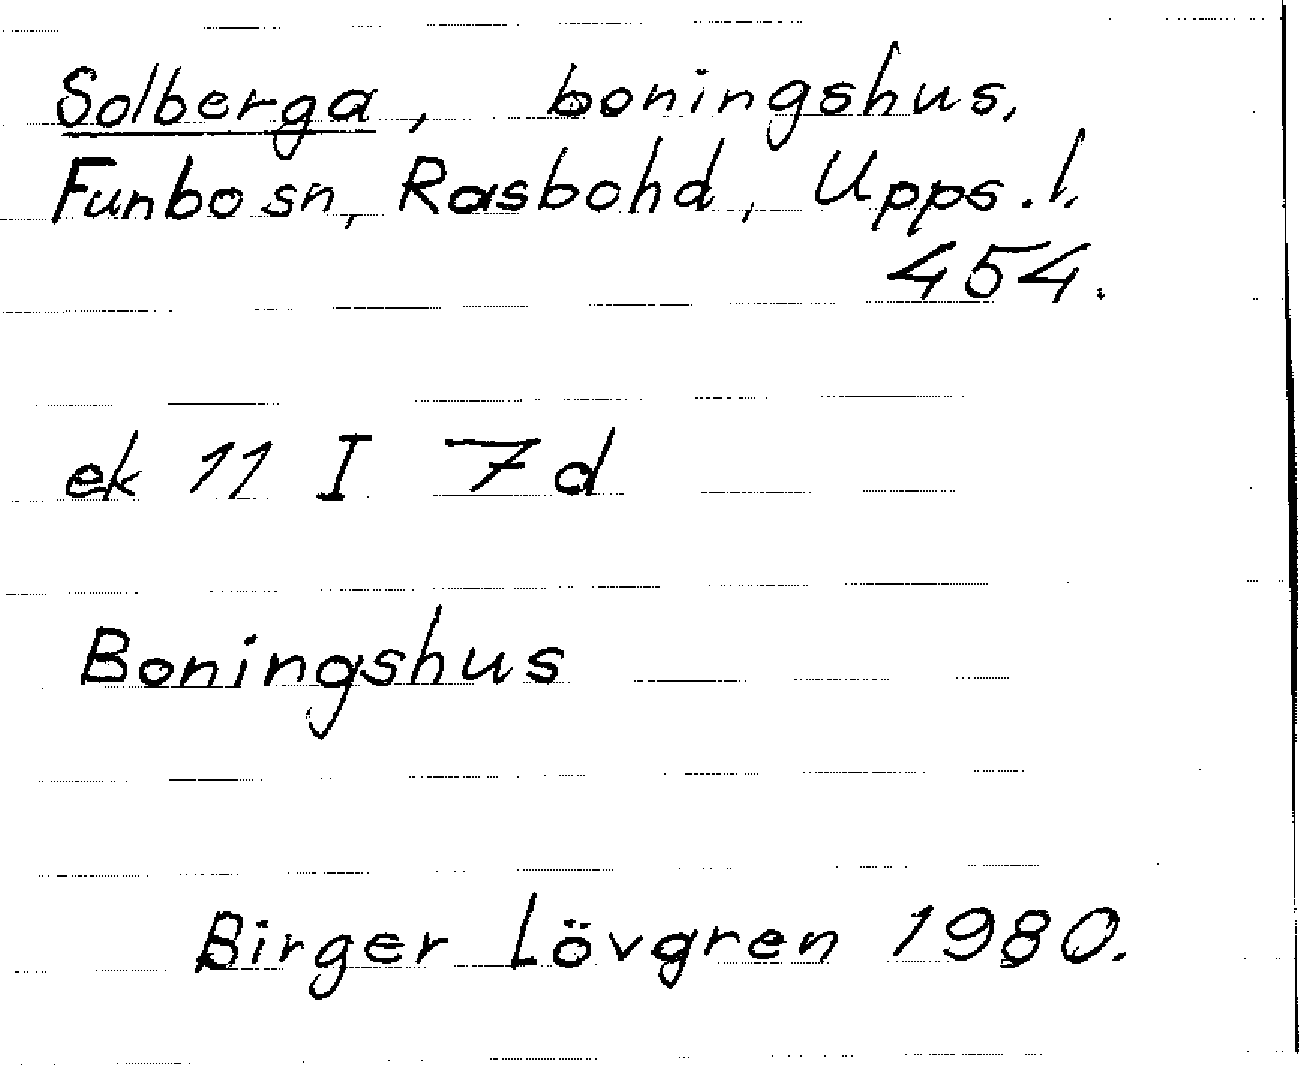 Solberga, boningshus,
Funbo sn, Rasbo hd, Upps. l.
454.
ek 11 I 7d
Boningshus
Birger Lövgren 1980.